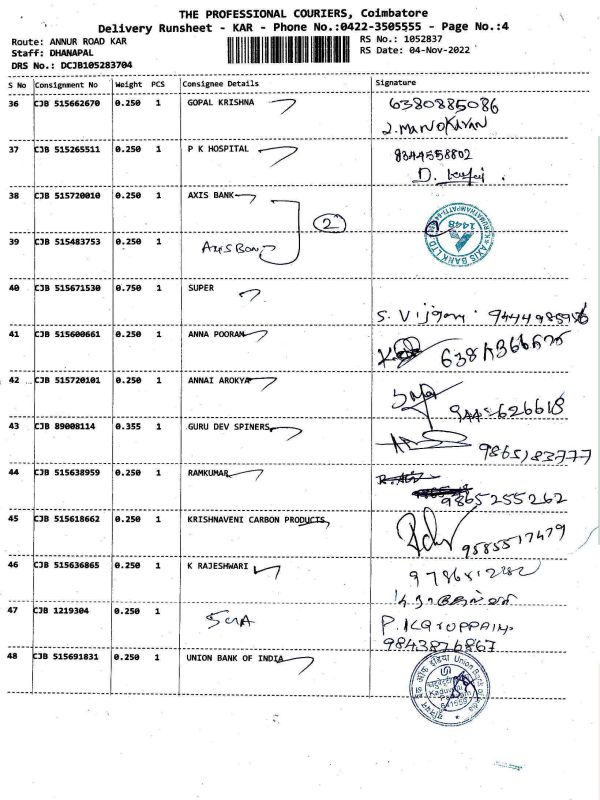 THE PROFESSIONAL COURIERS, Coimbatore
Delivery Runsheet - KAR - Phone No.:0422-3505555 - Page No.:4
Route: ANNUR ROAD KAR
RS No.: 1052837
Staff: DHANAPAL
RS Date: 04-Nov-2022
DRS No.: DCJB105283704
S No Consignment No Weight PCS Consignee Details Signature
36 CJB 515662670 0.250 1 GOPAL KRISHNA 6380885086
J. MANOKARAN
37 CJB 515265511 0.250 1 P K HOSPITAL 8344558802
D.
38 CJB 515720010 0.250 1 AXIS BANK
2
AXIS BANK LTD
1448
39 CJB 515483753 0.250 1 Axis Bank
40 CJB 515671530 0.750 1 SUPER
S. Vijayan
41 CJB 515600661 0.250 1 ANNA POORAM
42 CJB 515720101 0.250 1 ANNAI AROKYA
43 CJB 89008114 0.355 1 GURU DEV SPINERS
9865183777
44 CJB 515638959 0.250 1 RAMKUMAR
9865255262
45 CJB 515618662 0.250 1 KRISHNAVENI CARBON PRODUCTS
9585517479
46 CJB 515636865 0.250 1 K RAJESHWARI
47 CJB 1219304 0.250 1
P. KARUPPAIH
9843876867
48 CJB 515691831 0.250 1 UNION BANK OF INDIA
Union Bank of India